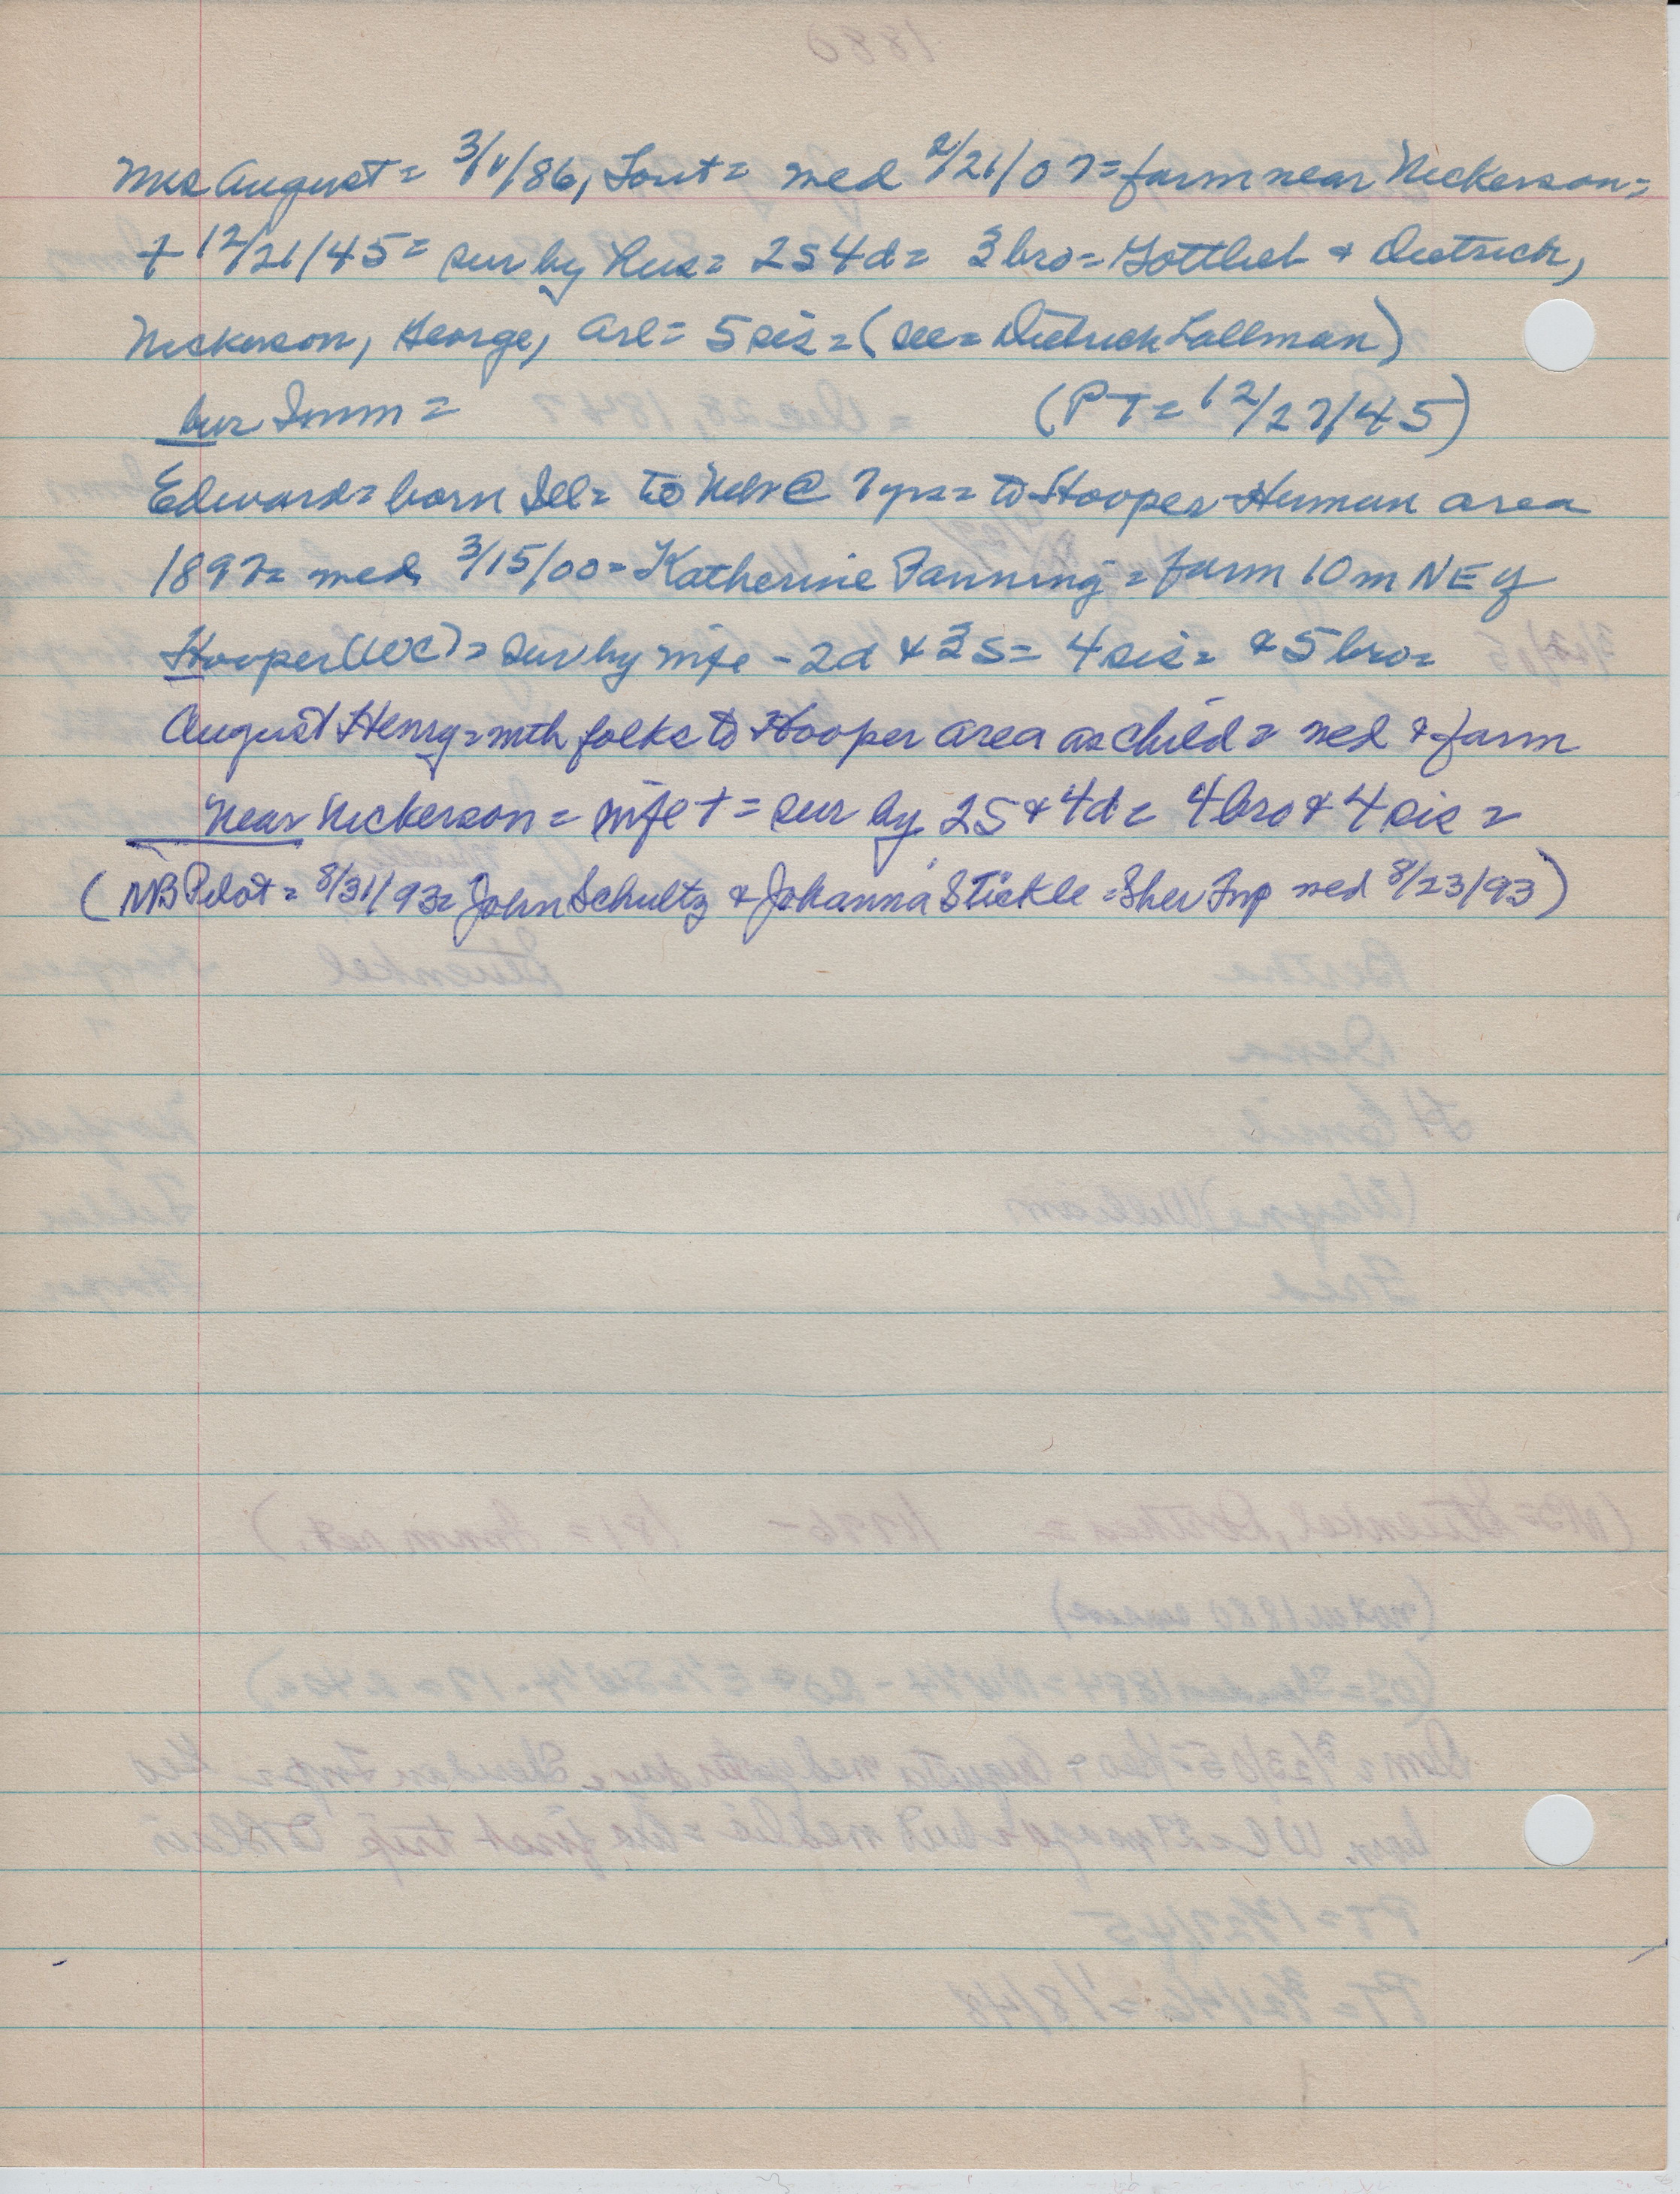 Mrs August = 3/11/86, Font = med 2/21/07 = farm near Nickerson =
+ 12/21/45 = sur by Hus = 2S 4d = 3 bro = Gottlieb & Dietrich,
Nickerson, George, Arl = 5 sis = (see = Dietrich Lallman)
bur Imm = (PT = 12/27/45)
Edward = born Ill = to Neb @ 7 yrs = to Hooper-Herman area
1897 = med 3/15/00 = Katherine Fanning = farm 10 m NE of
Hooper (WC) = sur by wife - 2d & 3s = 4 sis = & 5 bro =
August Henry = with folks to Hooper area as child = med & farm
near Nickerson = wife + = sur by 2S & 4d = 4 bro & 4 sis =
(NB Pilot = 8/31/93 = John Schultz & Johanna Stickle = Sher Twp med 8/23/93)